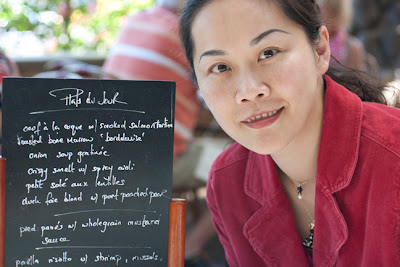 Plats du Jour
oeuf à la coque w/ smoked salmon
roasted bone marrow 'bordelaise'
onion soup gratinée
crispy smelt w/ spicy aioli
petit salé aux lentilles
duck foie blond w/ port poached pear
pied panés w/ wholegrain mustard
sauce
paella risotto w/ shrimp, mussels,